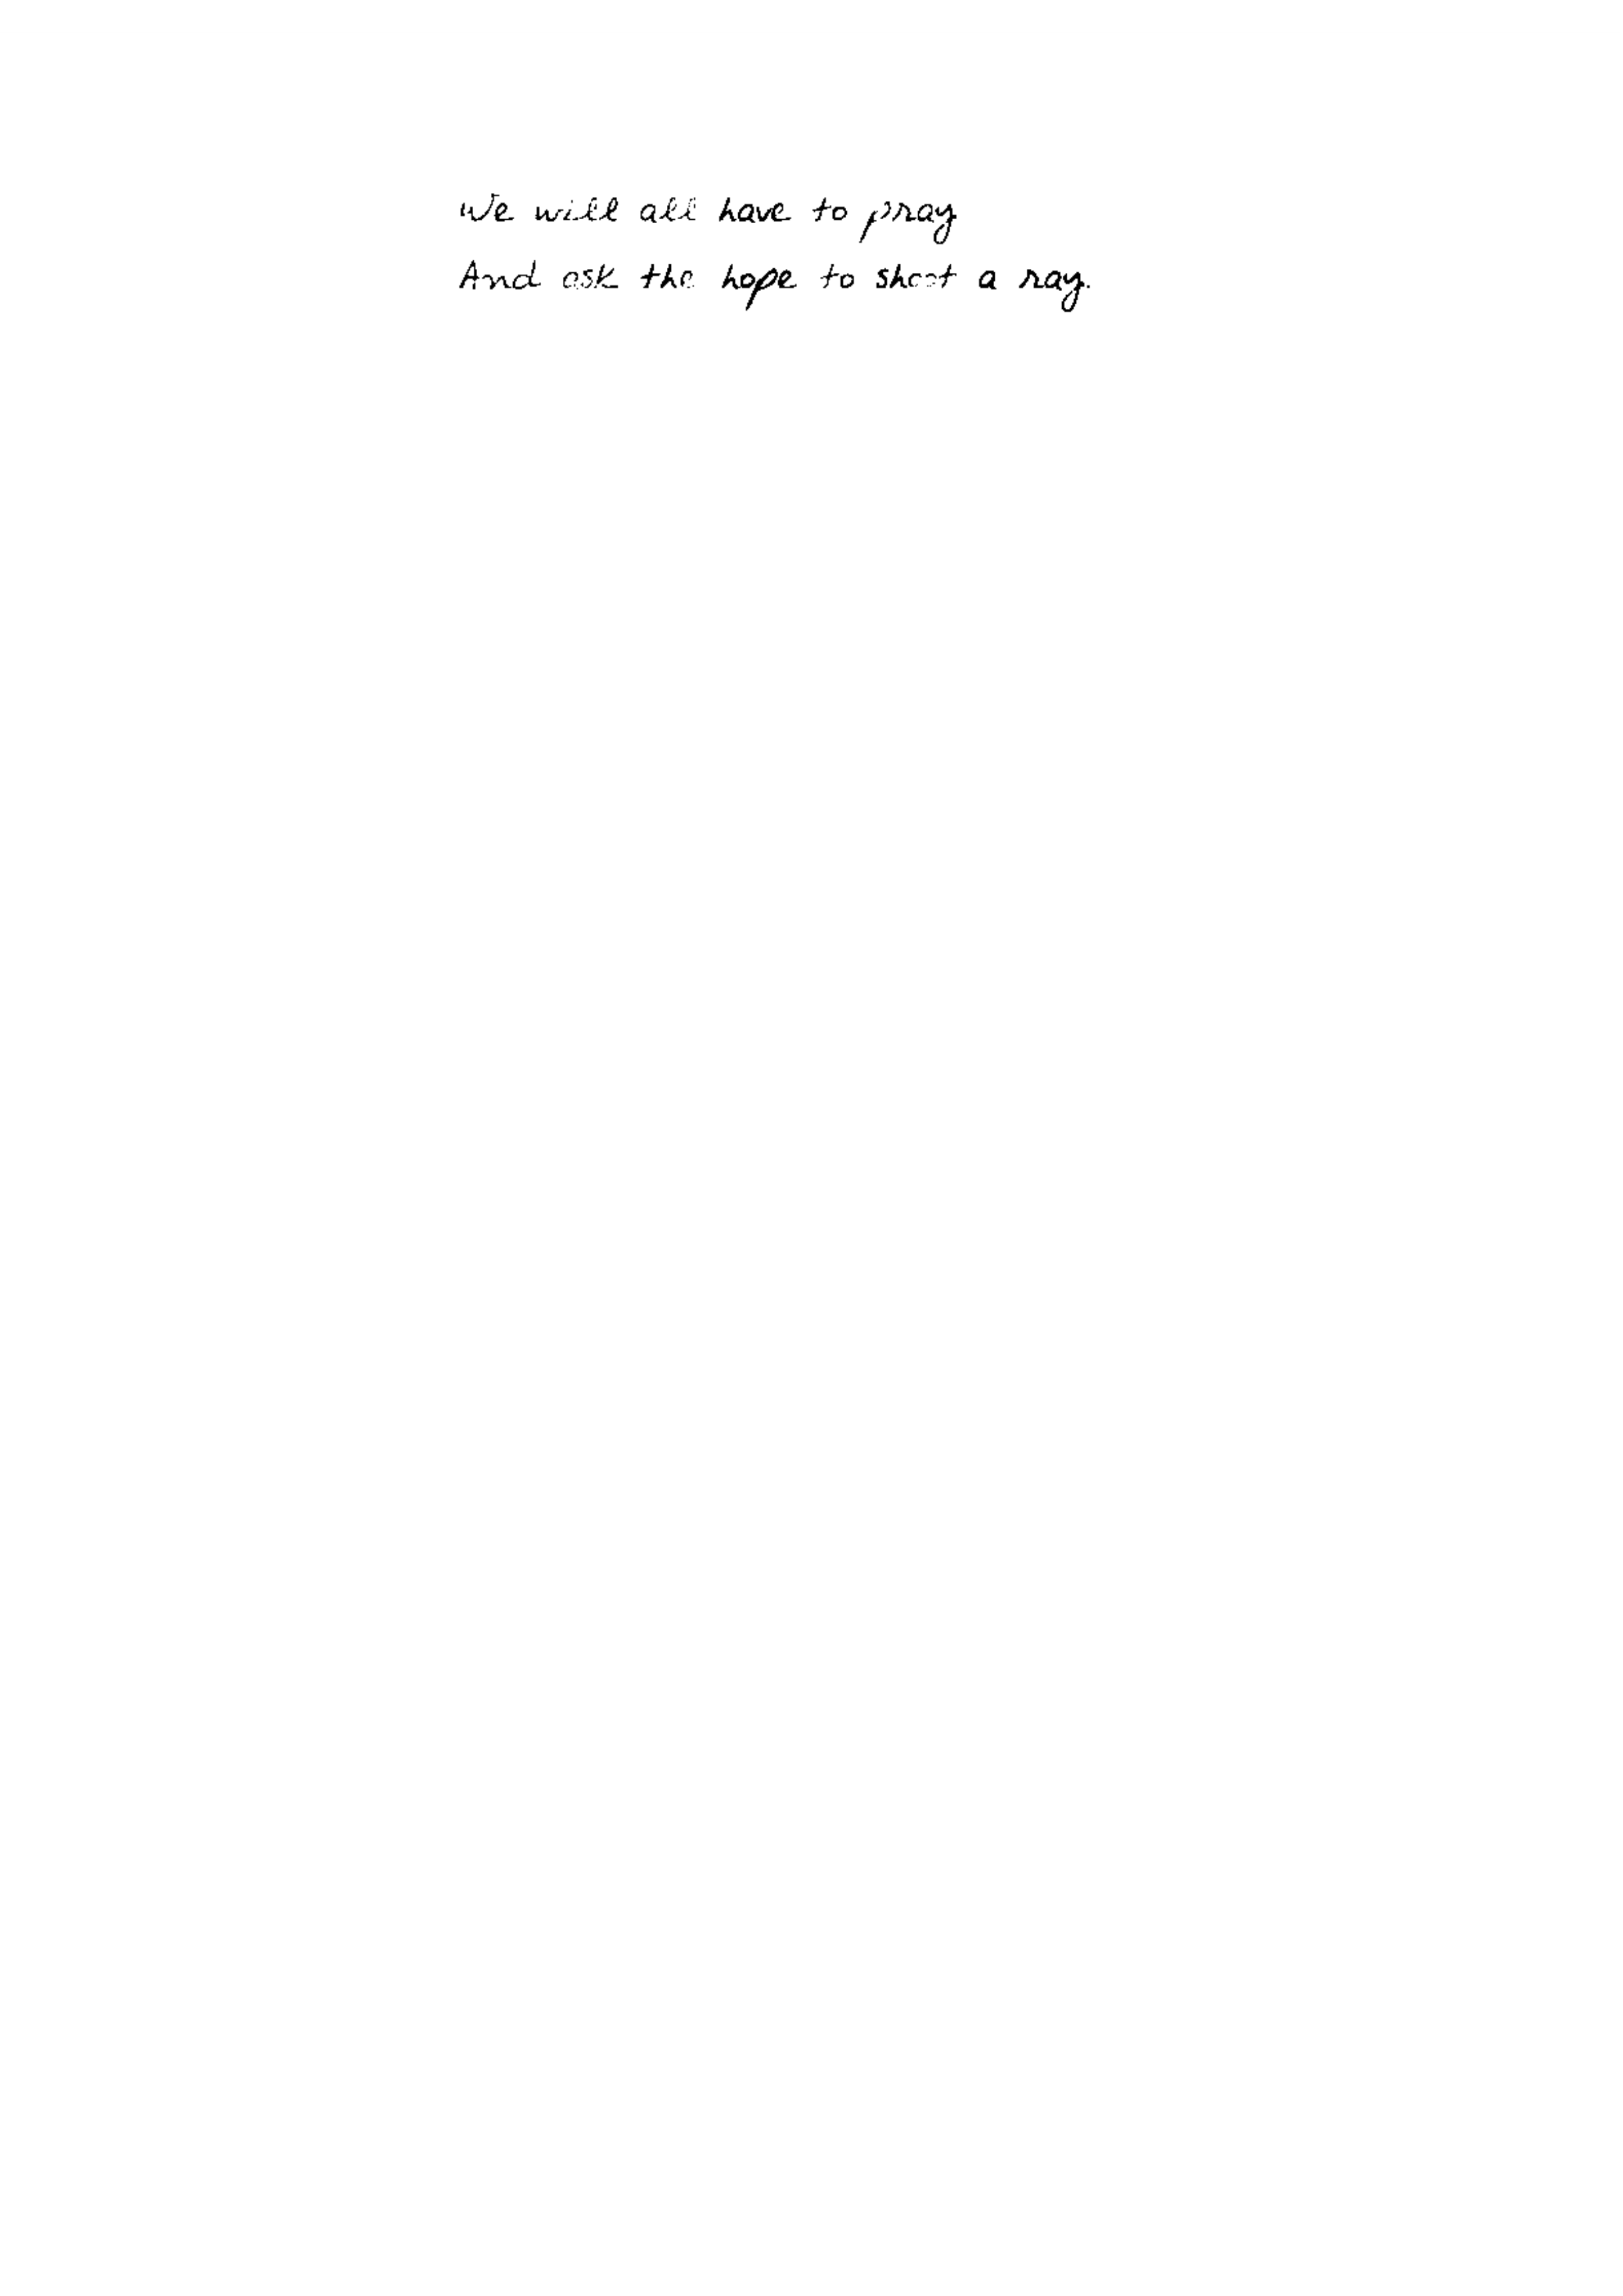 We will all have to pray
And ask the hope to shoot a ray.